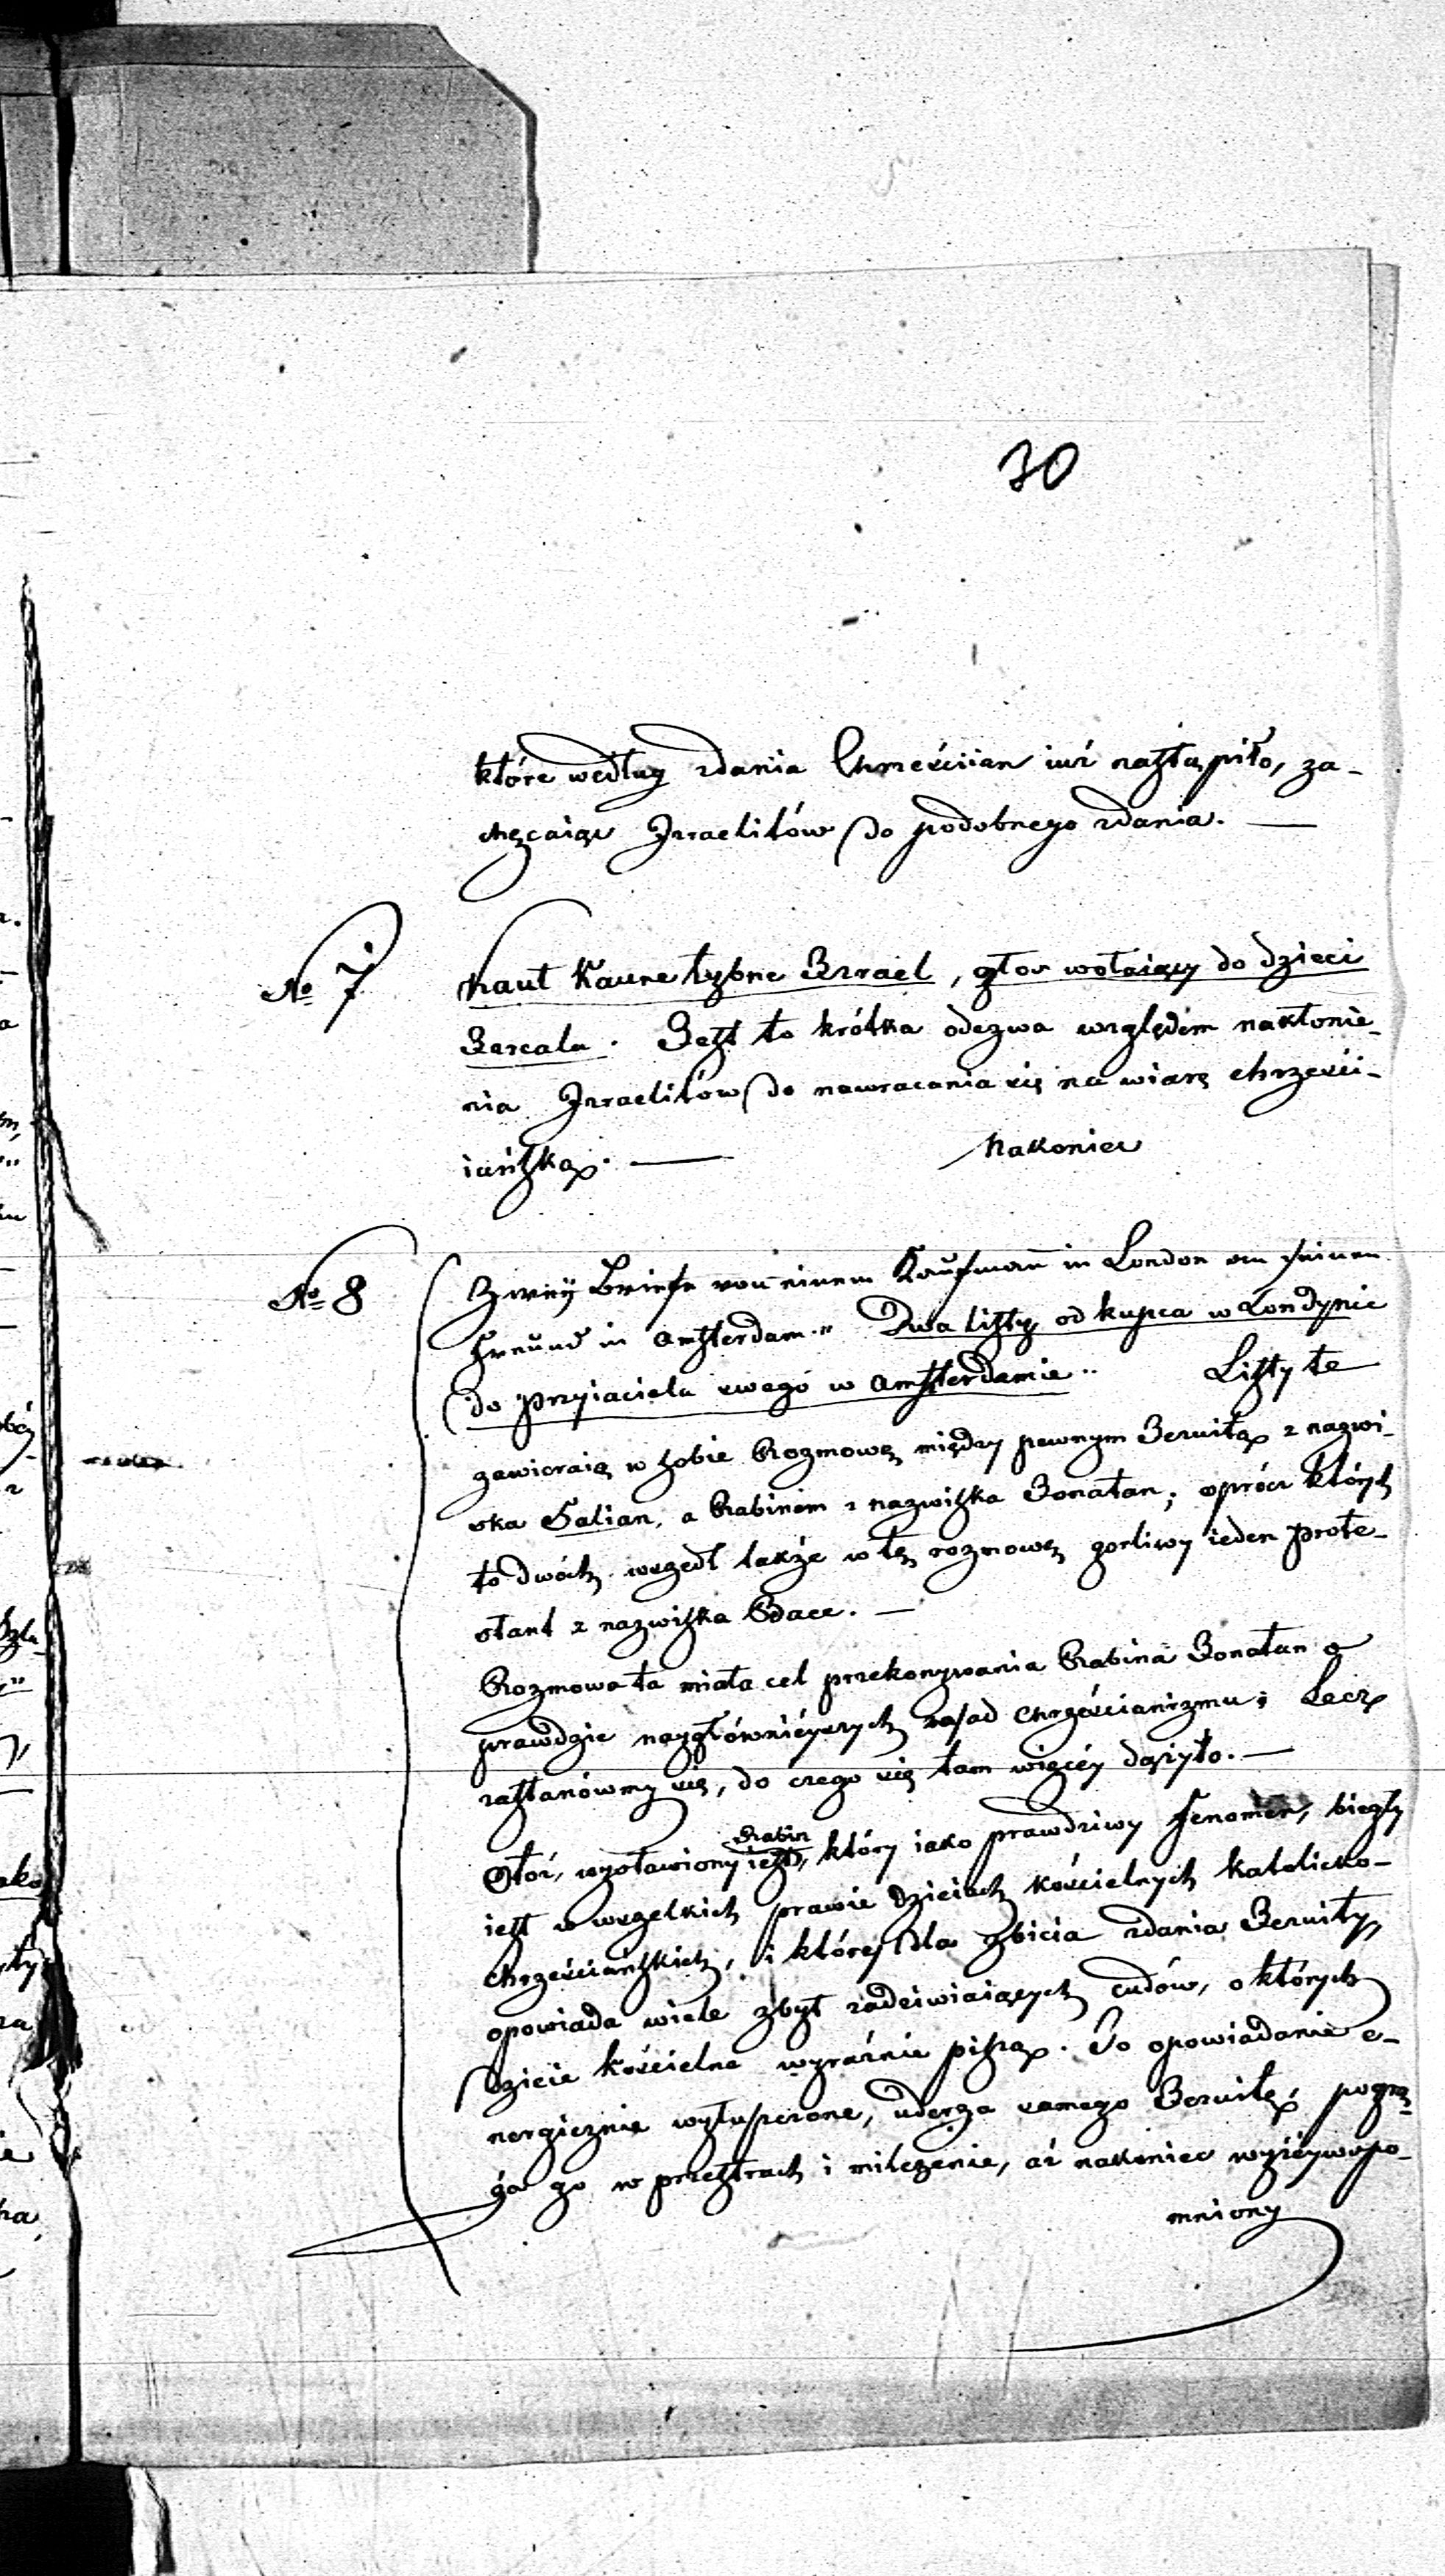 30
które według zdania Chrześciian iuż nastąpiło, za-
chęcaiąc Izraelitów do podobnego zdania. —
No 7
Kaul Kaure lybne Izrael, głos wołaiący do dzieci
Izreala. Jest to krótka odezwa względem nakłonie-
nia Izraelitów do nawracania się na wiarę chrześci-
iańską. — Nakoniec
No 8
Zweÿ Briefe von einem Kaufman in London an seinen
Freund in Amsterdam." Dwa listy od kupca w Londynie
do przyiaciela swego w Amsterdamie" Listy te
zawieraią w sobie Rozmowę między pewnym Jezuitą z nazwi-
ska Salian, a Rabinem z nazwiska Jonatan; oprócz których
to dwóch wszedł także w tę rozmowę gorliwy ieden prote-
stant z nazwiska .—
Rozmowa ta miała cel przekonywania Rabina Jonatan o
prawdzie naygłównieyszych zasad Chrześcianizmu; Lecz
zastanówmy się, do czego się tam więcéy dążyło. —
Rabin
Otóż, wysławiony iest, który iako prawdziwy Fenomen, biegły
iest w wszelkich prawie dzieiach kościelnych katolicko-
chrześciańskich, i który dla zbicia zdania Jezuity,
opowiada wiele zbyt zadziwiaiących cudów, o których
dzieie kościelne wyraźnie piszą. To opowiadanie e-
nergicznie wyłuszczone, uderza samego Jezuitę, pogrą-
ża go w przestrach i milczenie, aż nakoniec wyżéywspo-
mniony